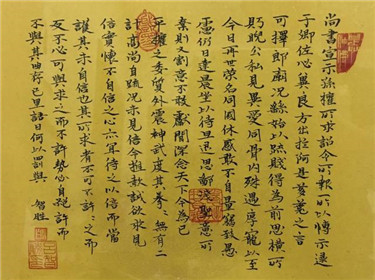 尚書宣示孫權所求詔令所報所以博示逮
于卿佐必冀良方出於阿是芻蕘之言
可擇郎廟況繇始以疏賤得為前恩橫所
盼睨公私見異愛同骨肉殊遇厚寵以至
今日再世榮名同國休慼敢不自量竊致愚
慮仍日達晨坐以待旦退思鄙淺聖意所
棄則又割意不敢獻聞深念天下今為已
平權之委質外震神武度其拳々無有二
計高尚自疏況未見信今推款誠欲求見
信實懷不自信之心亦宜待之以信而當
護其未自信也其所求者不可不許々之而
反不必可與求之而不許勢必自絕許而
不與其曲在己里語曰何以罰與
智勝